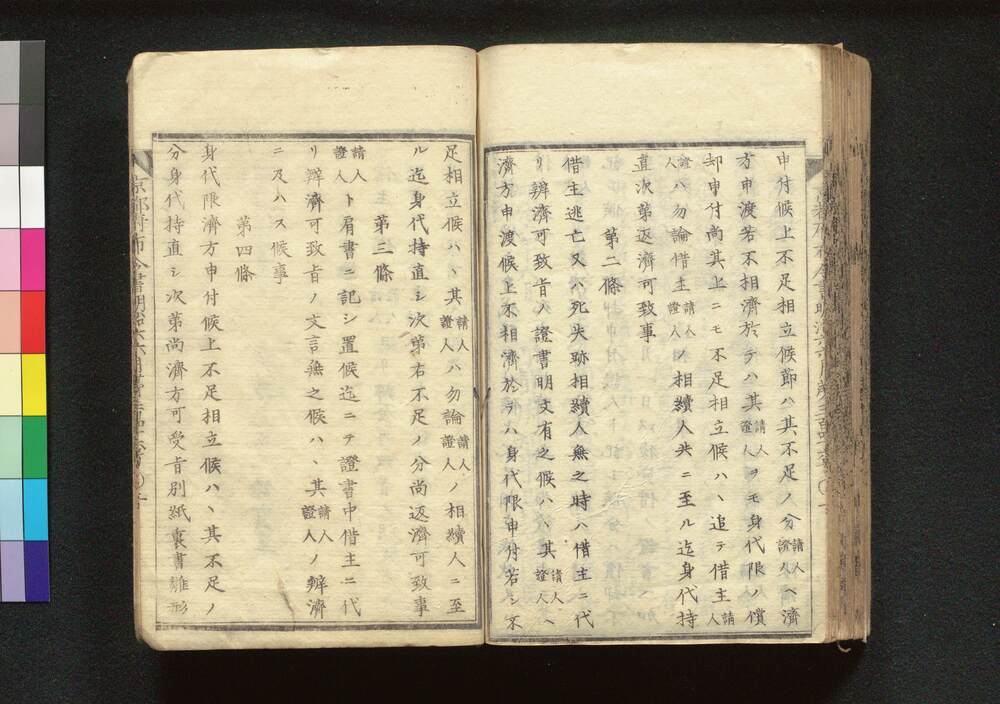 申付候上不足相立候節ハ其不足ノ分請人證人ヘ濟
方申渡若不相濟於テハ其請人證人ヲモ身代限ノ償
却申付尚其上ニモ不足相立候ハヽ追テ借主請人
證人ハ勿論借主請人證人ノ相續人共ニ至ル迄身代持
直次第返濟可致事
第二條
借主逃亡又ハ死失跡相續人無之時ハ借主ニ代
リ辨濟可致旨ノ證書明文有之候ハヽ其請人證人ヘ
濟方申渡候上不相濟於テハ身代限申付若シ不
足相立候ハヽ其請人證人ハ勿論請人證人ノ相續人ニ至
ル迄身代持直シ次第右不足ノ分尚返濟可致事
第三條
請人證人ト肩書ニ記シ置候迄ニテ證書中借主ニ代
リ辨濟可致旨ノ文言無之候ハヽ其請人證人ノ辨濟
ニ及ハス候事
第四條
身代限濟方申付候上不足相立候ハヽ其不足ノ
分身代持直シ次第尚濟方可受旨別紙裏書雛形
京都府布令書明治六六月第二百四十六号